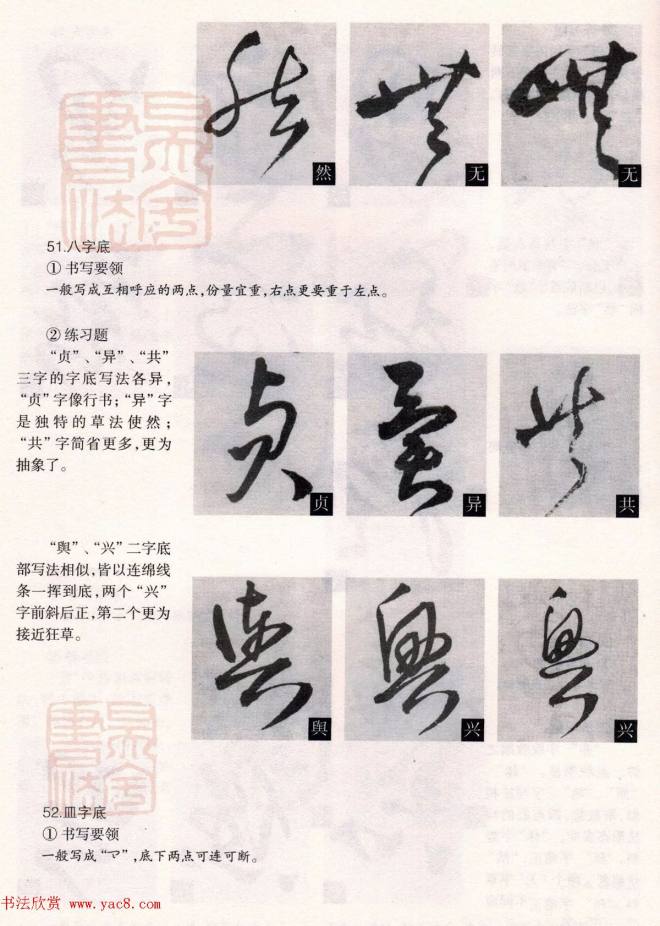 然 无 无
51.八字底
① 书写要领
一般写成互相呼应的两点，份量宜重，右点更要重于左点。
② 练习题
“贞”、“异”、“共”
三字的字底写法各异，
“贞”字像行书；“异”字
是独特的草法使然；
“共”字简省更多，更为
抽象了。
贞 异 共
“舆”、“兴”二字底
部写法相似，皆以连绵线
条一挥到底，两个“兴”
字前斜后正，第二个更为
接近狂草。
舆 兴 兴
52.皿字底
① 书写要领
一般写成“”，底下两点可连可断。
书法欣赏 www.yac8.com